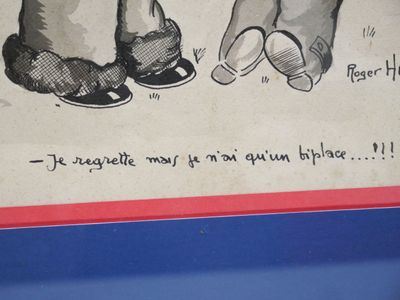 Roger H
— Je regrette mais je n'ai qu'un biplace....!!!